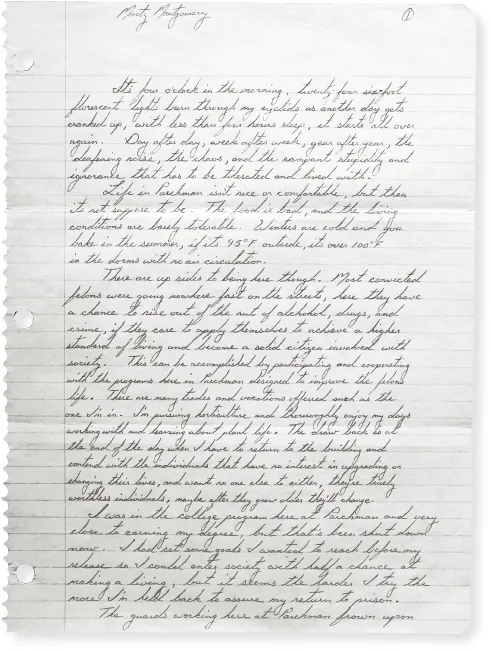 Marty Montgomery
1
Its four o'clock in the morning, twenty-four six-foot
florescent lights burn through my eyelids as another day gets
cranked up, with less than four hours sleep, it starts all over
again. Day after day, week after week, year after year, the
deafening noise, the chaos, and the rampant stupidity and
ignorance that has to be tolerated and lived with.
Life in Parchman isn't nice or comfortable, but then
its not suppose to be. The food is bad, and the living
conditions are barely tolerable. Winters are cold and you
bake in the summer, if its 95°F outside, its over 100°F
in the dorms with no air circulation.
There are up sides to being here though. Most convicted
felons were going nowhere fast on the streets, here they have
a chance to rise out of the rut of alchohol, drugs, and
crime, if they care to apply themselves to achieve a higher
standard of living and become a solid citizen involved with
society. This can be accomplished by participating and cooperating
with the programs here in Parchman designed to improve the felons
life. There are many trades and vocations offered such as the
one I'm in. I'm pursuing horticulture and thoroughly enjoy my days
working with and learning about plant life. The draw back is at
the end of the day when I have to return to the building and
contend with the individuals that have no interest in upgrading or
changing their lives, and want no one else to either, they're truely
worthless individuals, maybe after they grow older they'll change.
I was in the college program here at Parchman and very
close to earning my degree, but that's been shut down
now. I had set some goals I wanted to reach before my
release so I could enter society with half a chance at
making a living, but it seems the harder I try the
more I'm held back to assure my return to prison.
The guards working here at Parchman frown upon